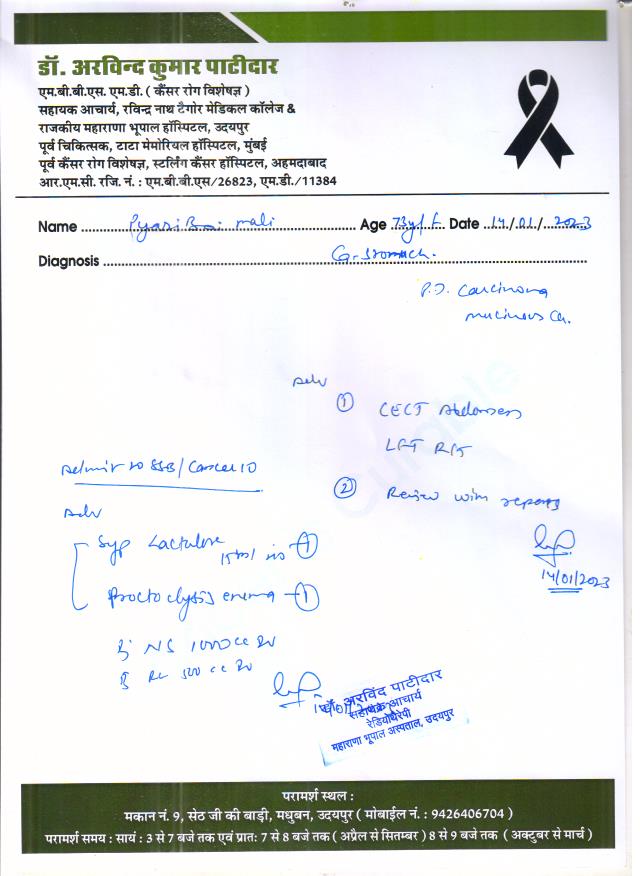 डॉ. अरविन्द कुमार पाटीदार
एम.बी.बी.एस. एम.डी. ( कैंसर रोग विशेषज्ञ )
सहायक आचार्य, रविन्द्र नाथ टैगोर मेडिकल कॉलेज &
राजकीय महाराणा भूपाल हॉस्पिटल, उदयपुर
पूर्व चिकित्सक, टाटा मेमोरियल हॉस्पिटल, मुंबई
पूर्व कैंसर रोग विशेषज्ञ, स्टर्लिंग कैंसर हॉस्पिटल, अहमदाबाद
आर.एम.सी. रजि. नं. : एम.बी.बी.एस/26823, एम.डी./11384
Name Pyari Bai mali Age 73y/F Date 14/01/2023
Diagnosis Ca-stomach.
P.D. Carcinoma
mucinous Ca.
Adv
① CECT Abdomen
LFT RFT
② Review with reports
14/01/2023
Admit to SSB/Cancer ID
Adv
Syp Lactulose 15ml ①
Proctoclysis enema ①
NS 1000 cc IV
RL 500 cc IV
डॉ. अरविंद पाटीदार
सहायक आचार्य
रेडियोथैरेपी
महाराणा भूपाल अस्पताल, उदयपुर
परामर्श स्थल :
मकान नं. 9, सेठ जी की बाड़ी, मधुबन, उदयपुर ( मोबाईल नं. : 9426406704 )
परामर्श समय : सायं : 3 से 7 बजे तक एवं प्रातः 7 से 8 बजे तक ( अप्रैल से सितम्बर ) 8 से 9 बजे तक ( अक्टुबर से मार्च )